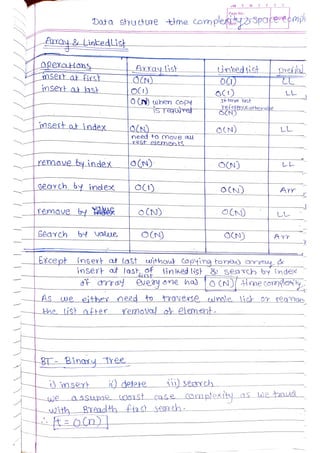 Data structure time complexity & space compl
Array & Linkedlist
operations Arraylist Linkedlist Useful
insert at first O(N) O(1) LL
insert at last O(1) O(1) LL
O(N) when copy is required
if have last reference otherwise O(N)
insert at index O(N) O(N) LL
need to move all rest elements
remove by index O(N) O(N) LL
search by index O(1) O(N) Arr
remove by value O(N) O(N) LL
search by value O(N) O(N) Arr
Except insert at last without copying to new array, &
insert at last, of linked list & search by index
first
of array every one has O(N) time complexity
As we either need to traverse whole list or
the list after removal of element.
BT - Binary Tree
i) insert ii) delete iii) search
we assume worst case complexity as we
with Breadth first search.
∴ t = O(n)